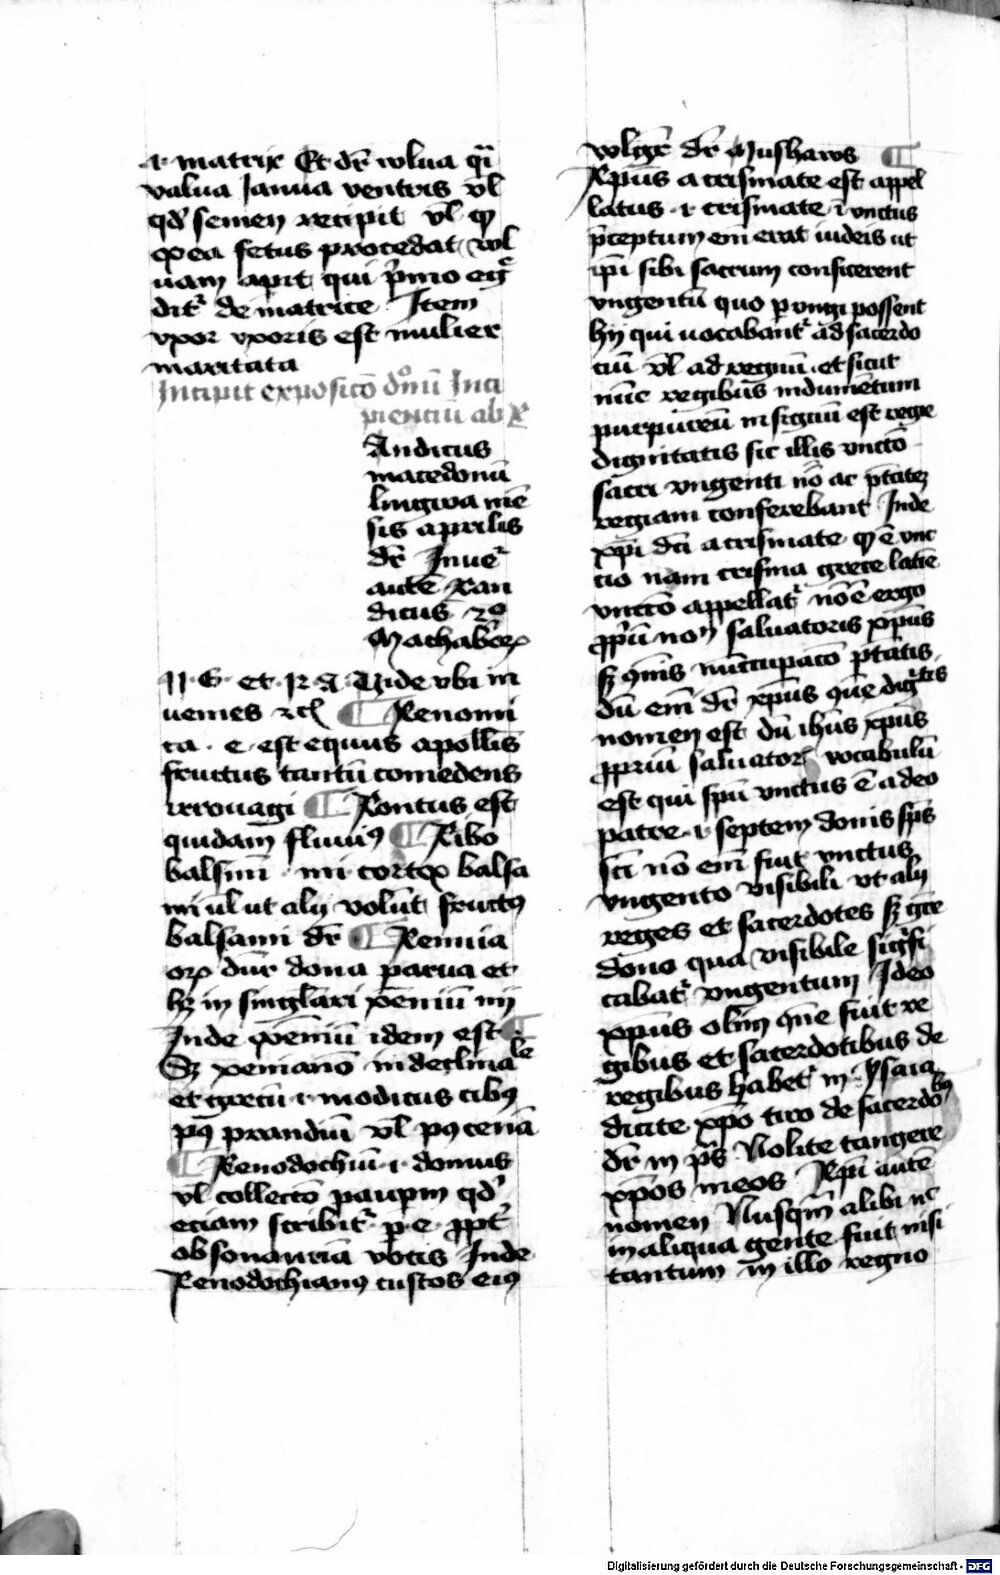 .i. matrix Et dr̄ wlua q̄i
valua Janua ventris vl̄
qd̓ semen recipit vl̄ qꝫ
ex ea fetus procedat wl
uam aꝑit qui p̄mo eig̓
dit᷑ de matrice Item
vxor vxoris est mulier
maritata
Incipit exposicō dōnū Inci
pienciū ab X
Andicus
macedonū
lingwa mē
sis aprilis
dr̄ Inue᷑
autē Xan
dicus 2o
Machabeoꝝ
et Vide vbi in
uenies ⁊cꝉ ¶ Xenomi
ca . e . est equus apollis
fructus tantū comedens
¶ Xontus est
quidam fluuiꝰ ¶ Xilo
balsm̄ . mi cortex balsa
mi ul̄ ut alij volūt fructꝰ
balsami dr̄ ¶ Xennia
oꝝ dn̄r dona parua et
hꝫ in singlari xēniū nij
Inde xēniū idem est ¶
Sꝫ xeniariō indeclina
le
et grecū .i. modicus cibꝰ
pꝰ prandiū vl̄ pꝰ cenā
¶ Xenodochiū .i. domus
vl̄ collectō pauꝑm qd̓
eciam scribit᷑ p . e . ꝓpt̓
obsonanciā vocis Inde
Xenodochianꝰ custos eiꝰ
wlgr̄ dr̄ ¶
Xp̄us a crismate est appel
latus .i. crismate .i. vnctus
p̄ceptum em̄ erat iudeis ut
ip̄i sibi sacrum conficerent
vngentū quo ꝑvngi possent
hij qui uocabant᷑ ad sacerdo
ciū vl̄ ad regnū . et sicut
nūc regibus indumentum
purpureū insigniū est regie
dignitatis sic illis vnctō
sacri vngenti nō ac p̄tatē
regiam conferebant Inde
xp̄i dc̄i a crismate qꝫ ē vnc
cio nam crisma grece latīe
vnctō appellat᷑ nō ē ergo
ꝓp̄ū noꝰ saluatoris xp̄us
sꝫ ꝯmīs nūcupacō p̄tatis
dū em̄ dr̄ xp̄us ꝯmūe dig̓tis
nomen est dū ih̄us xp̄us
ꝓpriū saluator᷑ vocabulū
est qui sp̄ū vnctus ē a deo
patre .i. septem donis sp̄s
sc̄i nō em̄ fuit vnctus
vngento visibili vt alij
reges et sacerdotes sꝫ gr̄e
dono qua visibile sig̓fi
cabat᷑ vngentum Ideo
xp̄us olim ꝯmūe fuit re
gibus et sacerdotibus de
regibus habet᷑ in ysaia
dicite xp̄o tiro de sacerdobꝰ
dr̄ in p̄s Nolite tangere
xp̄os meos Xp̄i autē
nomen Nusqm̄ alibi nc̄
in aliqua gente fuit nisi
tantum in illo regno
Digitalisierung gefördert durch die Deutsche Forschungsgemeinschaft - DFG